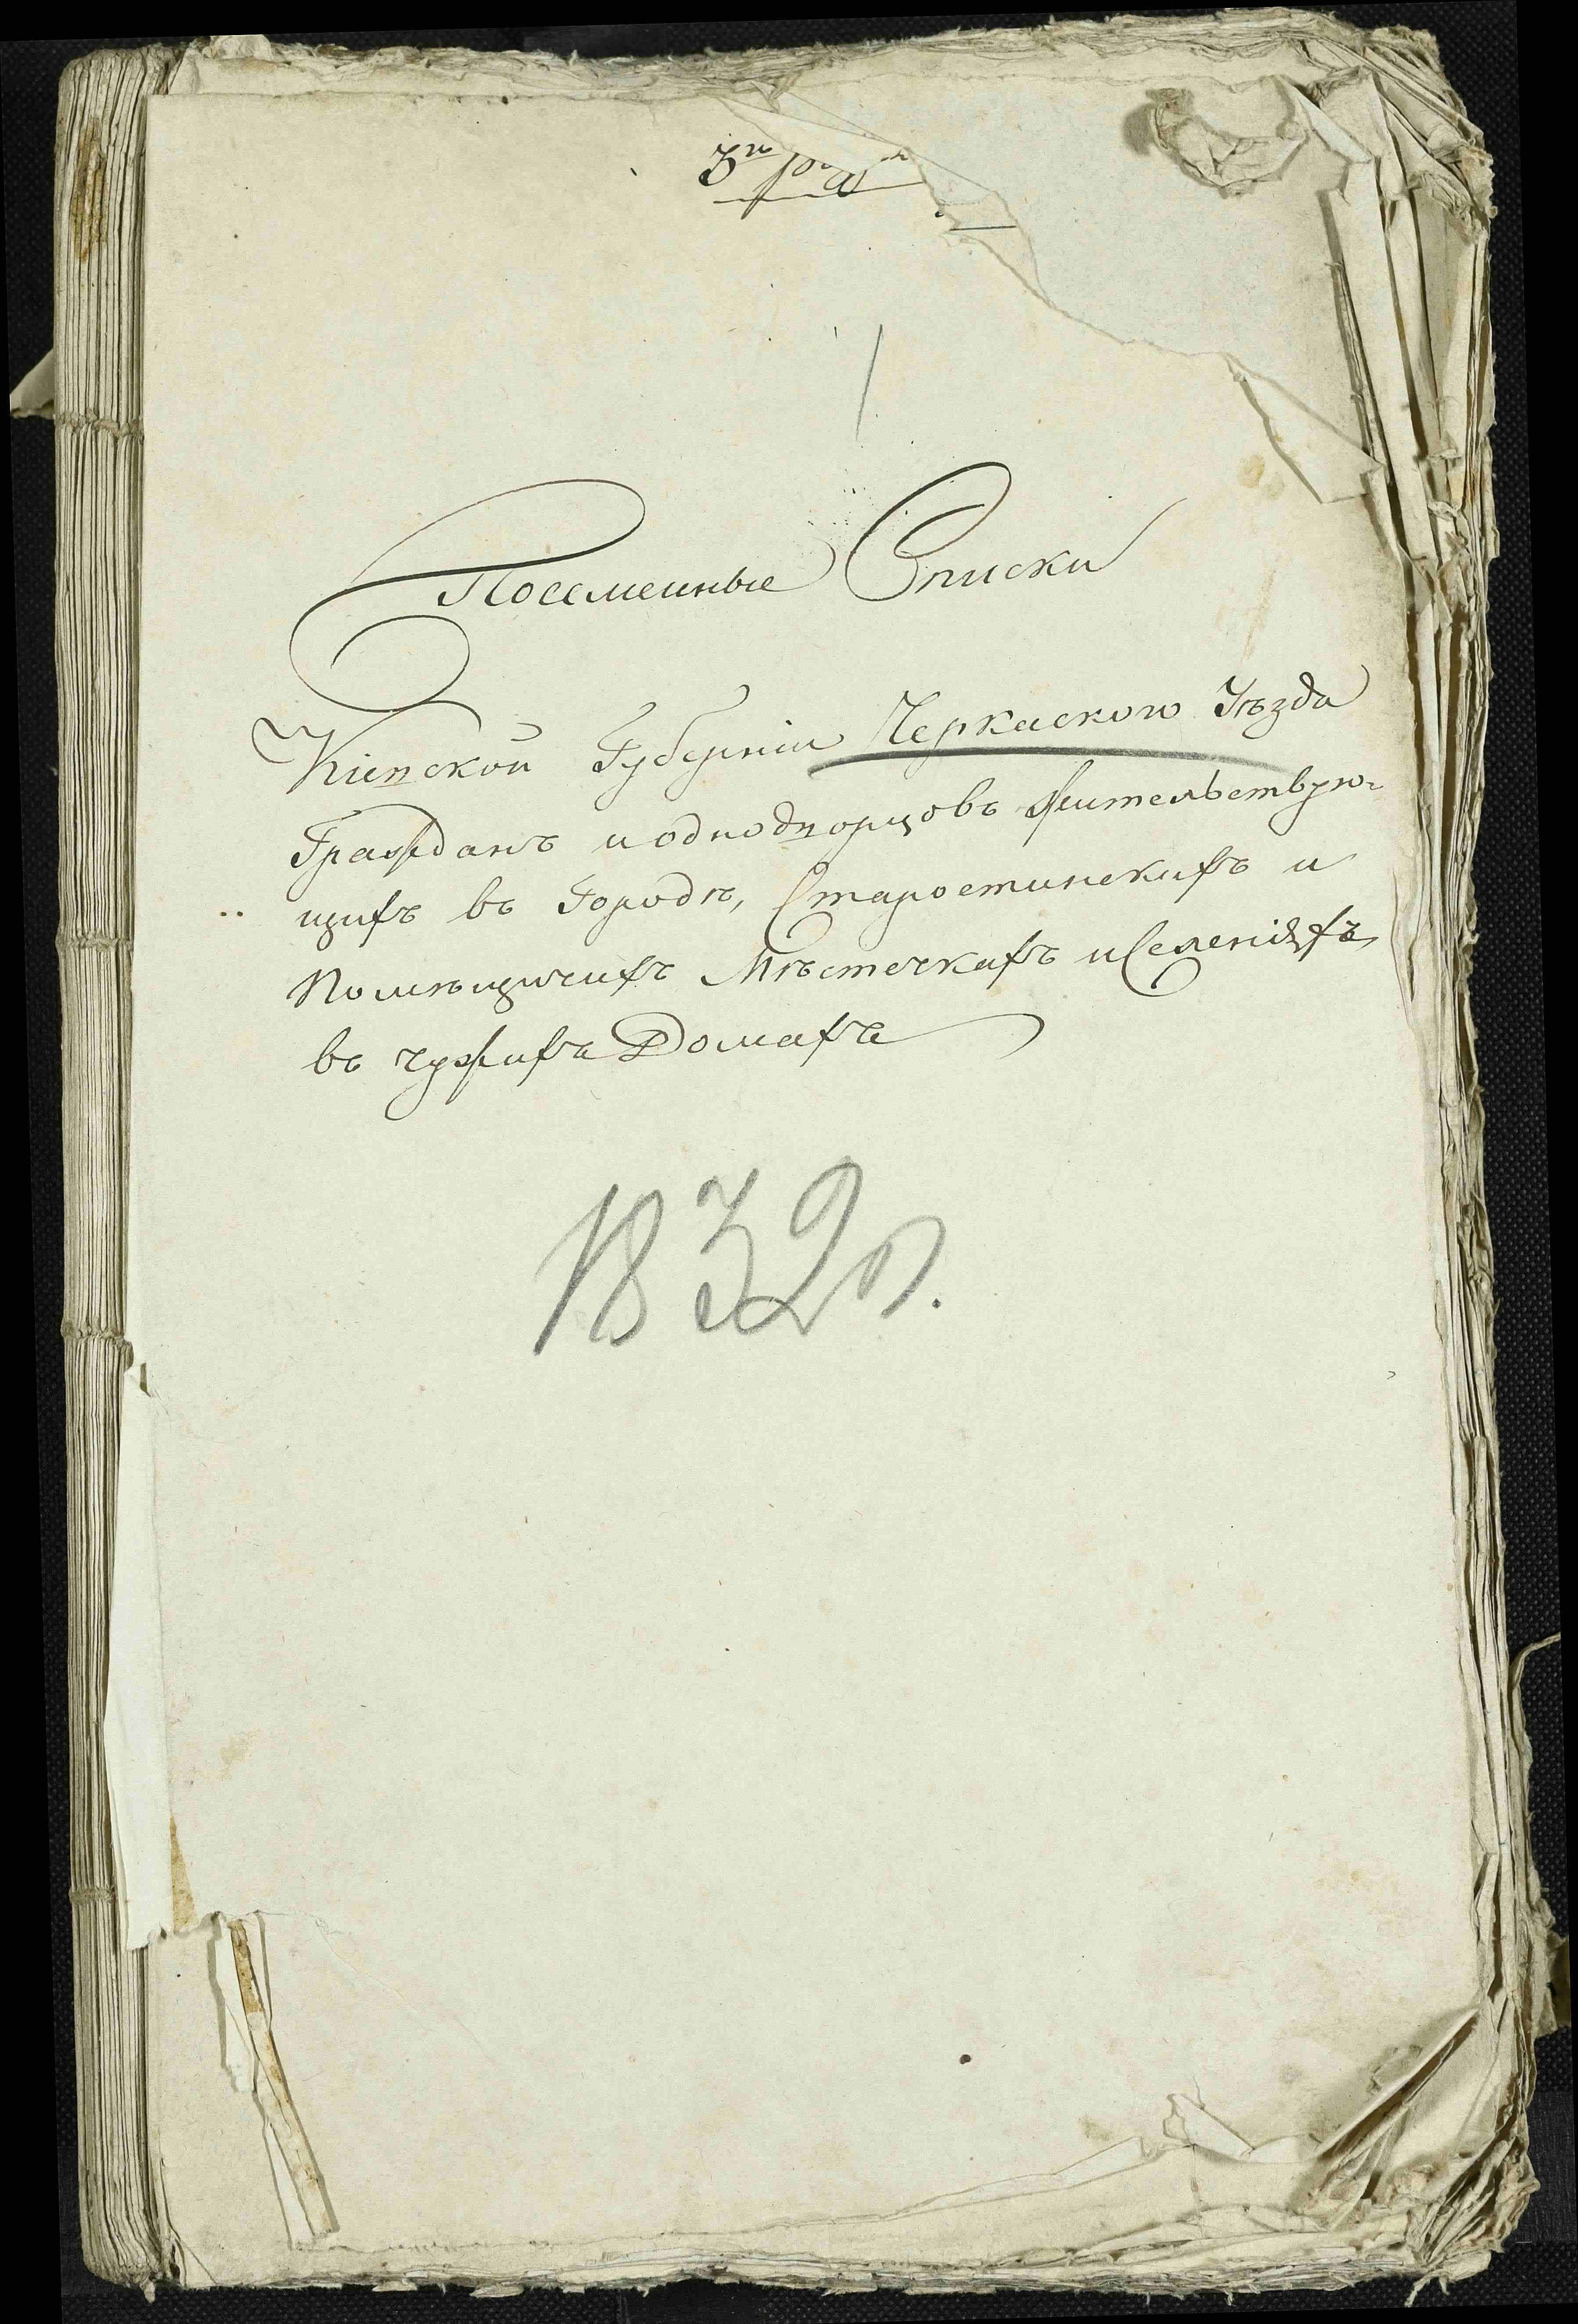 Посемейные Списки
Кіевской Губерніи Черкаского Уѣзда
Гражданъ и однодворцовъ жительствую-
щихъ въ Городѣ, Старостинскихъ и
Помѣщичихъ Мѣстечкахъ и Селеніяхъ
въ чужихъ Домахъ
1832 г.